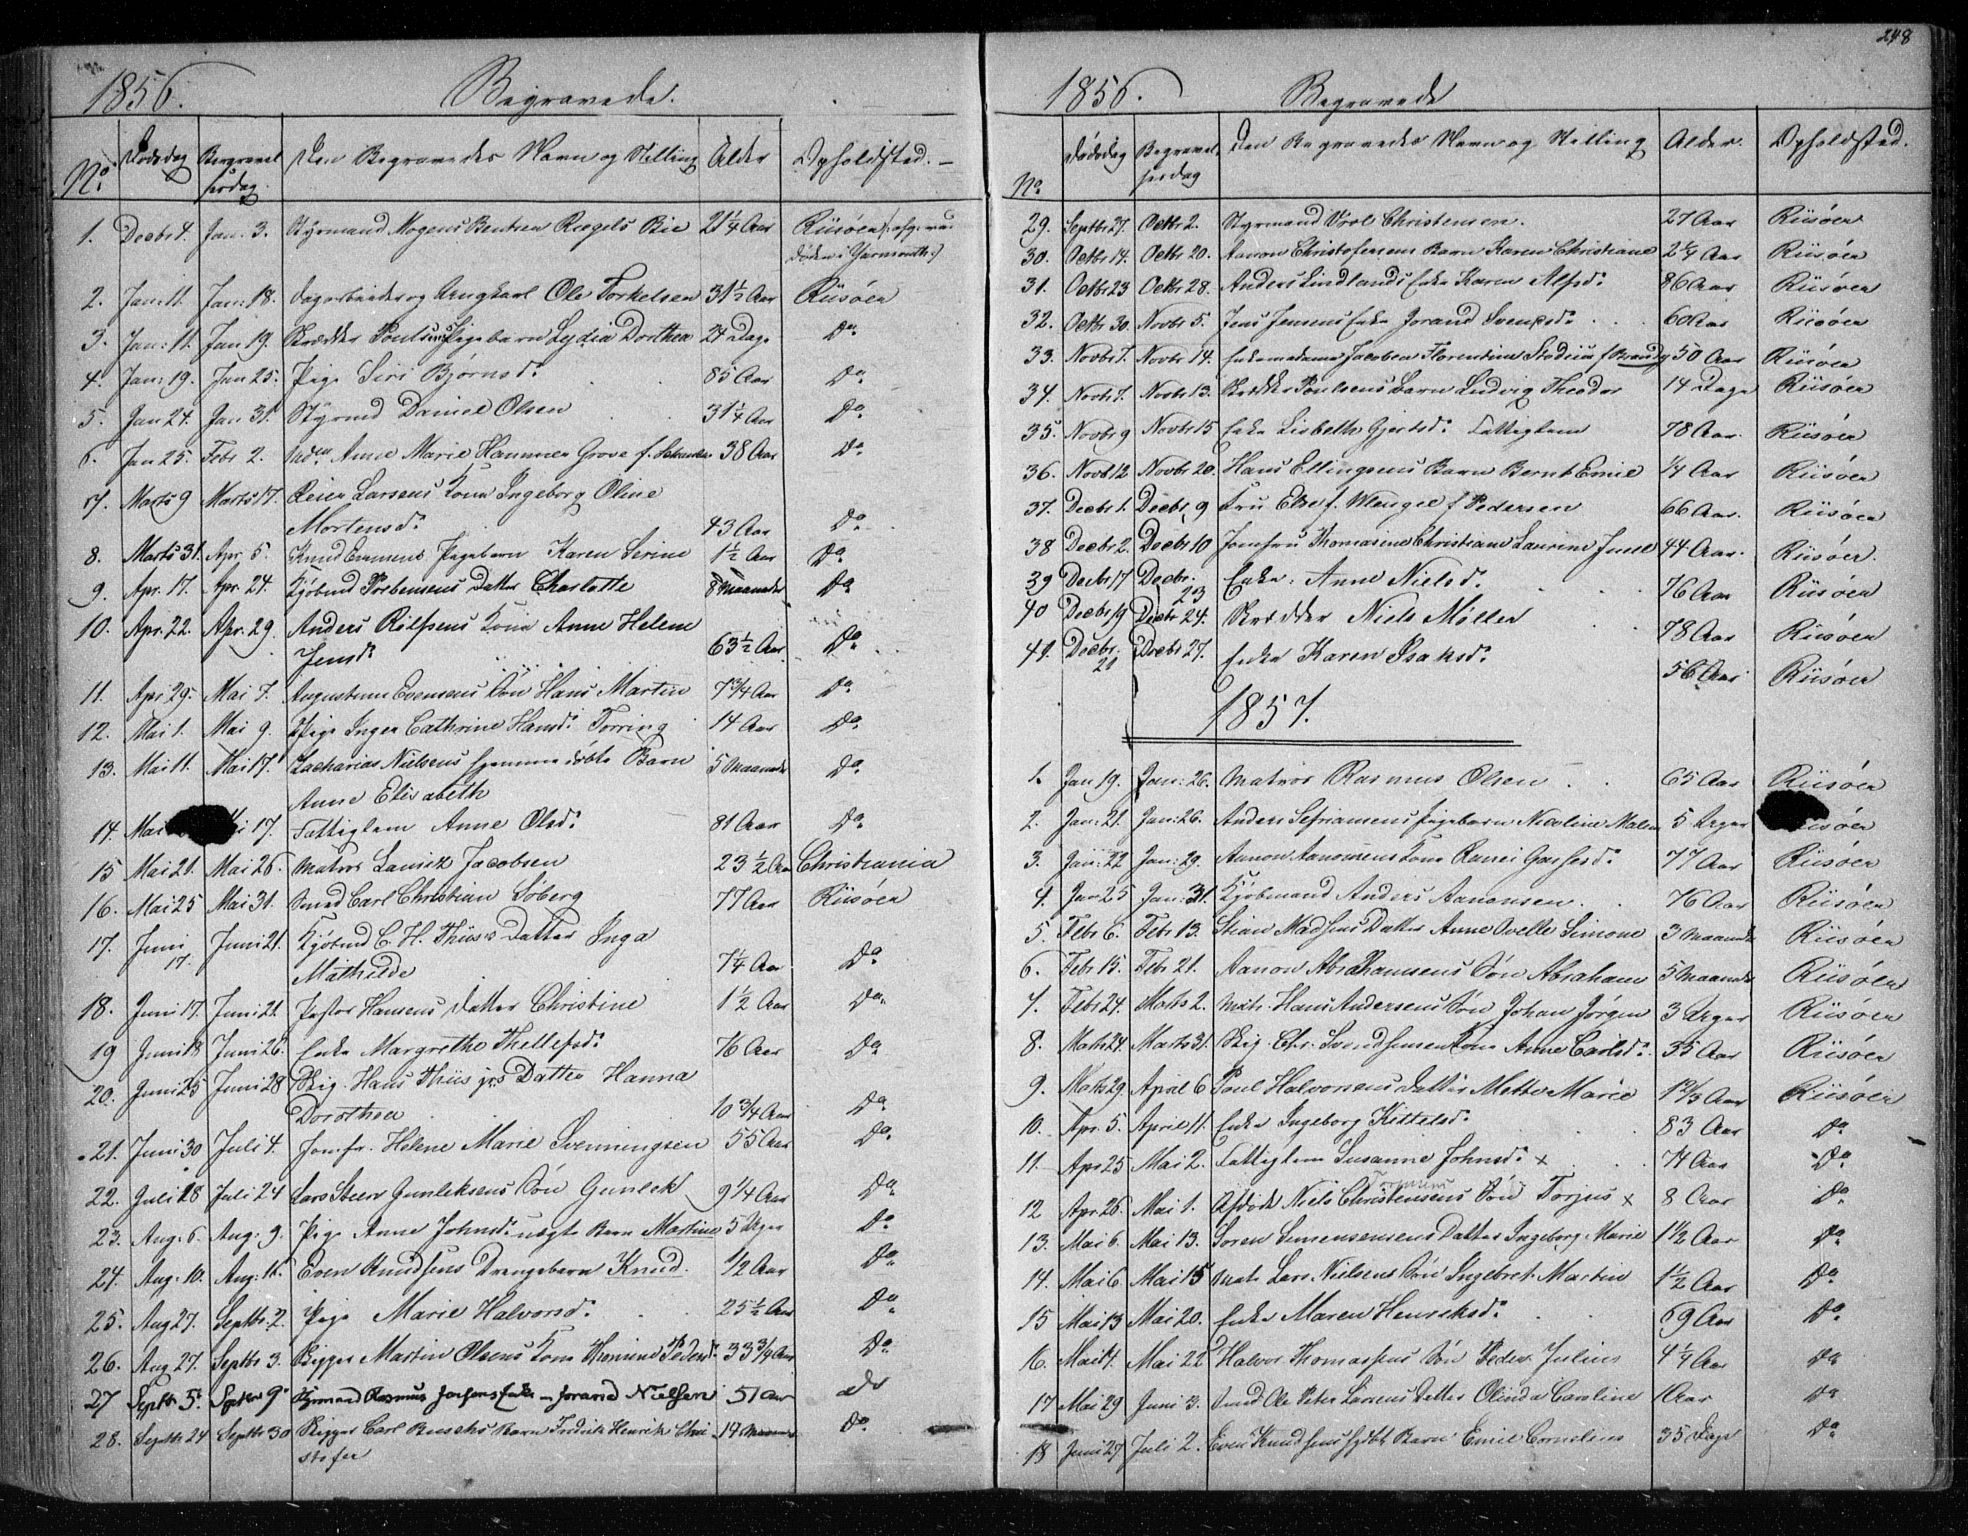 1856.
Begravede.
No.
Dødsdag
Begravelsesdag.
Den Begravedes Navn og Stilling
Alder
Opholdsted. –
1. Decbr 4. Jan: 3. Styrmand Mogens Bentsen Riegels Bie 21 1/4 Aar Riisøer
døden i Yarmouth:)
2. Jan: 11. Jan: 18. Dagarbeider og Ole Torkelsen 31 1/2 Aar Riisøer
3. Jan: 11. Jan 19. Skrædder Poulsens Pigebarn Lydia Dorthea 24 Dage Do
4. Jan: 19. Jan 25. Pige Siri Bjørnsd: 85 Aar Do
5. Jan 24. Jan 31. Styrmd Daniel Olsen 31 1/4 Aar Do
6. Jan 25. Febr 2. Mdm Anne Marie Hammer Grove f. 38 Aar Do
7. Marts 9 Marts 17. Reier Larsens Kone Ingeborg Oline
Mortensd: 43 Aar Do
8. Marts 31. Apr. 5. Knud Pigebarn Karen Serine 1 1/2 Aar Do
9. Apr. 17. Apr. 24. Kjøbmd Prebensens Datter Charlotte 8 Maaneder Do
10. Apr. 22. Apr. 29. Anders Rolfsens Kone Anne Helene
Jensd: 63 1/2 Aar Do
11. Apr 29. Mai 7. Evensens Søn Hans Martin 7 3/4 Aar Do
12. Mai 1. Mai 9. Pige Inger Cathrine Hansd: Torring 14 Aar Do
13. Mai 11. Mai 17. Zacharias Nielsens hjemmedøbte Barn 5 Maaneder Do
Anne Elisabeth
14. Mai 17. Fattiglem Anne Olsd: 81 Aar Do
15 Mai 21. Mai 26. Matros Lauritz Jacobsen 23 1/2 Aar Christiania
16. Mai 25 Mai 31. Smed Carl Christian Søberg 77 Aar Riisøer
17. Juni 17. Juni 21. Kjøbmd C. H. Thiis's Datter Inga
Mathilde 7 1/4 Aar Do
18. Juni 17. Juni 21. Pastor Hansens Datter Christine 1 1/2 Aar Do
19 Juni 18 Juni 26. Enke Margrethe Thellefsd: 76 Aar Do
20. Juni 25 Juni 28 Skip. Hans Thiis jrs Datter Hanna
Dorothea 10 3/4 Aar Do
21. Juni 30 Juli 4. Jomfr. Helene Marie Svenningsen 55 Aar Do
22. Juli 18 Juli 24 Lars Steen Gunleksens Søn Gunlek 9 1/4 Aar Do
23. Aug. 6. Aug. 9. Pige Anne Johnsd: uægte Barn Martine 5 Uger Do
24. Aug: 10. Aug: 16. Even Knudsens Drengebarn Knud. 1/2 Aar Do
25. Aug 27. Septbr. 2. Pige Marie Halvorsd: 25 1/2 Aar Do
26. Aug 27. Septbr 3. Rigger Martin Olsens Kone Pedersd: 33 3/4 Aar Do
27 Septbr 5. Septbr 9 Styrmand Rasmus Enke – Jorand Nielsen 51 Aar do
28. Septbr 24 Septbr 30 Rigger Carl Buschs Barn Fredrik Henrik Chri- 14 Maaneder Do
stofer
248
1856.
Begravede
No
Dødsdag
Begravelsesdag
Den Begravedes Navn og Stilling
Alder.
Opholdsted.
29. Septbr 27. Octbr 2. Styrmand Christensen. 27 Aar Riisøer
30. Octbr 14. Octbr 20. Aanon Christofersens Barn Karen Christiane 2 1/4 Aar Riisøer
31. Octbr 23 Octbr 28. Anders Lindlands Enke Karen Alfsd: 86 Aar Riisøer
32. Octbr 30. Novbr 5. Jens Jensens Enke Jorand Svensd: 60 Aar Riisøer
33. Novbr 7. Novbr 14. Enkemadame Jacobea Florentine f Brandt 50 Aar Riisøer
34. Novbr 7. Novbr 13. Skrædder Poulsens Barn Ludvig Theodor 14 Dage Riisøer
35. Novbr 9 Novbr 15 Enke Lisbeth Gjertsd: Fattiglem 78 Aar. Riisøer
36. Novbr 12 Novbr 20. Hans Ellingsens Barn Bernt Emil 1/4 Aar Riisøer
37. Decbr 1. Decbr. 9 Fru Else f. Wengel f Pedersen 66 Aar. Riisøer
38 Decbr 2. Decbr 10 Jomfru Thomasene Christiane Laurine Juul 44 Aar. Riisøer.
39 Decbr 17 Decbr. 23 Enke. Anne Nielsd. 76 Aar Riisøer
40 Decbr 19 Decbr 24. Skrædder Niels Møller 78 Aar Riisøer
41. Decbr. 21 Decbr 27. Enke Karen Isaksd: 56 Aar Riisøer
1857.
1. Jan 19. Jan: 26. Matros Rasmus Olsen 65 Aar Riisøer
2. Jan: 21. Jan: 26. Anders Pigebarn Nicoline Malene 5 Uger Riisøer
3. Jan: 22 Jan: 29. Aanon Aanonsens Kone 77 Aar Riisøer
4. Jan 25 Jan: 31. Kjøbmand Anders Aanonsen. 76 Aar Riisøer
5. Febr 6. Febr 13. Stian Madsens Datter Anne Simone 3 Maaneder Riisøer
6. Febr 15. Febr 21. Aanon Abrahamsens Søn Abraham 5 Maaneder Riisøer
7. Febr 24. Marts 2. Matr. Hans Andersens Søn Johan Jørgen 3 Uger Riisøer
8. Marts 24. Marts 31. Skip. Chr. Svendsens Kone Anne Carlsd: 35 Aar Riisøer
9. Marts 29. April 6 Poul Halvorsens Datter Mette Marie 1 2/3 Aar Riisøer
10. Apr. 5. April 11. Enke Ingeborg Kittelsd. 83 Aar Do
11. Apr 25 Mai 2. Fattiglem Susanne Johnsd: x 74 Aar Do
12 Apr 26. Mai 1. Afdøde Niels Christensens Søn Torjus x 8 Aar Do
13. Mai 6. Mai 13. Søren Simonsens Datter Ingeborg Marie 1 1/2 Aar Do
14. Mai 6 Mai 15 Matr Lars Nielsens Søn Ingebret Martin 1 1/2 Aar Do
15 Mai 13 Mai 20. Enke Maren Henriksd: 69 Aar Do
16. Mai 17. Mai 22 Halvor Thomassens Søn Peder Julius 4 1/4 Aar Do
17 Mai 29 Juni 3. Smed Ole Peter Larsens Datter Olinda Caroline 1 Aar Do
18 Juni 27 Juli 2. Even Knudsens Barn Emil Cornelius 35 Dage Do